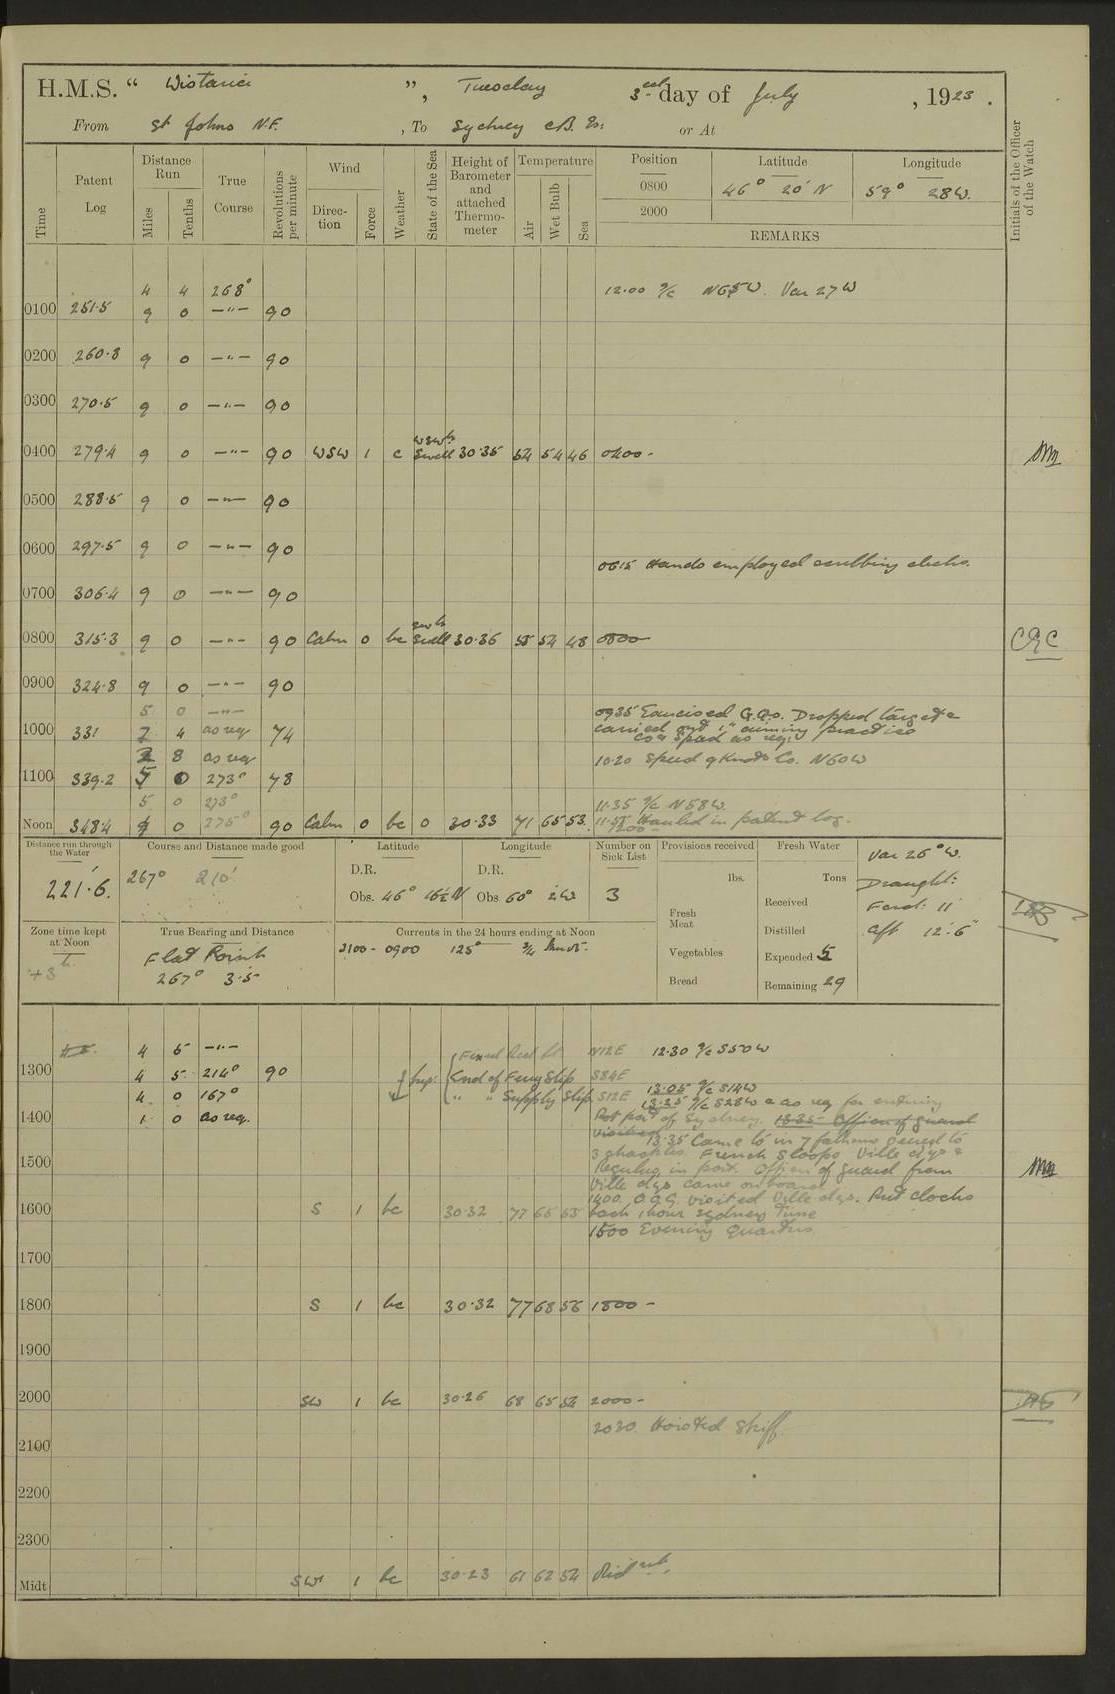 H.M.S. “ Wistaria ”, Tuesday 3rd day of July, 1923.
From St Johns N.F., To Sydney C.B. Is: or At
Time
Patent Log
Distance Run
Miles
Tenths
True Course
Revolutions per minute
Wind
Direction
Force
Weather
State of the Sea
Height of Barometer and attached Thermometer
Temperature
Air
Wet Bulb
Sea
Position Latitude Longitude
0800 46° 20' N 59° 28 W.
2000
REMARKS
Initials of the Officer of the Watch
4 4 268° 12.00 N65W. Var 27 W
0100 251.5 9 0 —"— 90
0200 260.8 9 0 —"— 90
0300 270.5 9 0 —"— 90
0400 279.4 9 0 —"— 90 WSW 1 c WSW'ly Swell 30.35 54 54 46 0400 -
0500 288.5 9 0 —"— 90
0600 297.5 9 0 —"— 90
0615 Hands employed scrubbing decks.
0700 306.4 9 0 —"— 90
0800 315.3 9 0 —"— 90 Calm 0 bc Swell 30.36 55 54 48 0800
0900 324.8 9 0 —"— 90
5 0 —"— 0935 Exercised G.Qrs. Dropped target &
1000 331 7 4 as req 74 carried out 1" aiming practice
Co & Speed as req:
8 as req 10.20 Speed 9 Knots Co. N60W
1100 339.2 5 0 273° 78
5 0 273° 11.35 N58W.
Noon 348.4 4 0 275° 90 Calm 0 bc 0 30.33 71 65 53. 11.55 Hauled in patent log.
1200 -
Distance run through the Water
221.6.
Course and Distance made good
267° 210'
Latitude
D.R.
Obs. 46° 16½ N
Longitude
D.R.
Obs. 60° 2 W
Number on Sick List
3
Provisions received
lbs.
Fresh Meat
Vegetables
Bread
Fresh Water
Tons
Received
Distilled
Expended 5
Remaining 29
Var 26° W.
Draught:
Ford: 11'
Aft 12'.6"
Zone time kept at Noon
+3 h.
True Bearing and Distance
Flat Point
267° 3.5
Currents in the 24 hours ending at Noon
2100 - 0900 125° ¾ knots.
4 5 —"— N12E 12.30 S50W
1300 4 5 214° 90 End of Ferry Slip S84E
4 0 167° " " Supply Slip S12E 13.05 S14W
13.25 S28W & as req for entering
1400 1 0 as req. port of Sydney. 1335 Officer of guard
visited
13.35 Came to in 7 fathoms veered to
1500 3 shackles. French Sloops Ville d'ys &
Regulus in port. Officer of guard from
Ville d'ys came onboard
1400 O.O.G. visited Ville d'ys. Put clocks
1600 S 1 bc 30.32 77 65 55 back 1 hour Sydney Time
1500 Evening Quarters
1700
1800 S 1 bc 30.32 77 68 56 1800 -
1900
2000 SW 1 bc 30.26 68 65 54 2000 -
2030. Hoisted Skiff.
2100
2200
2300
Midt SW 1 bc 30.23 61 62 54